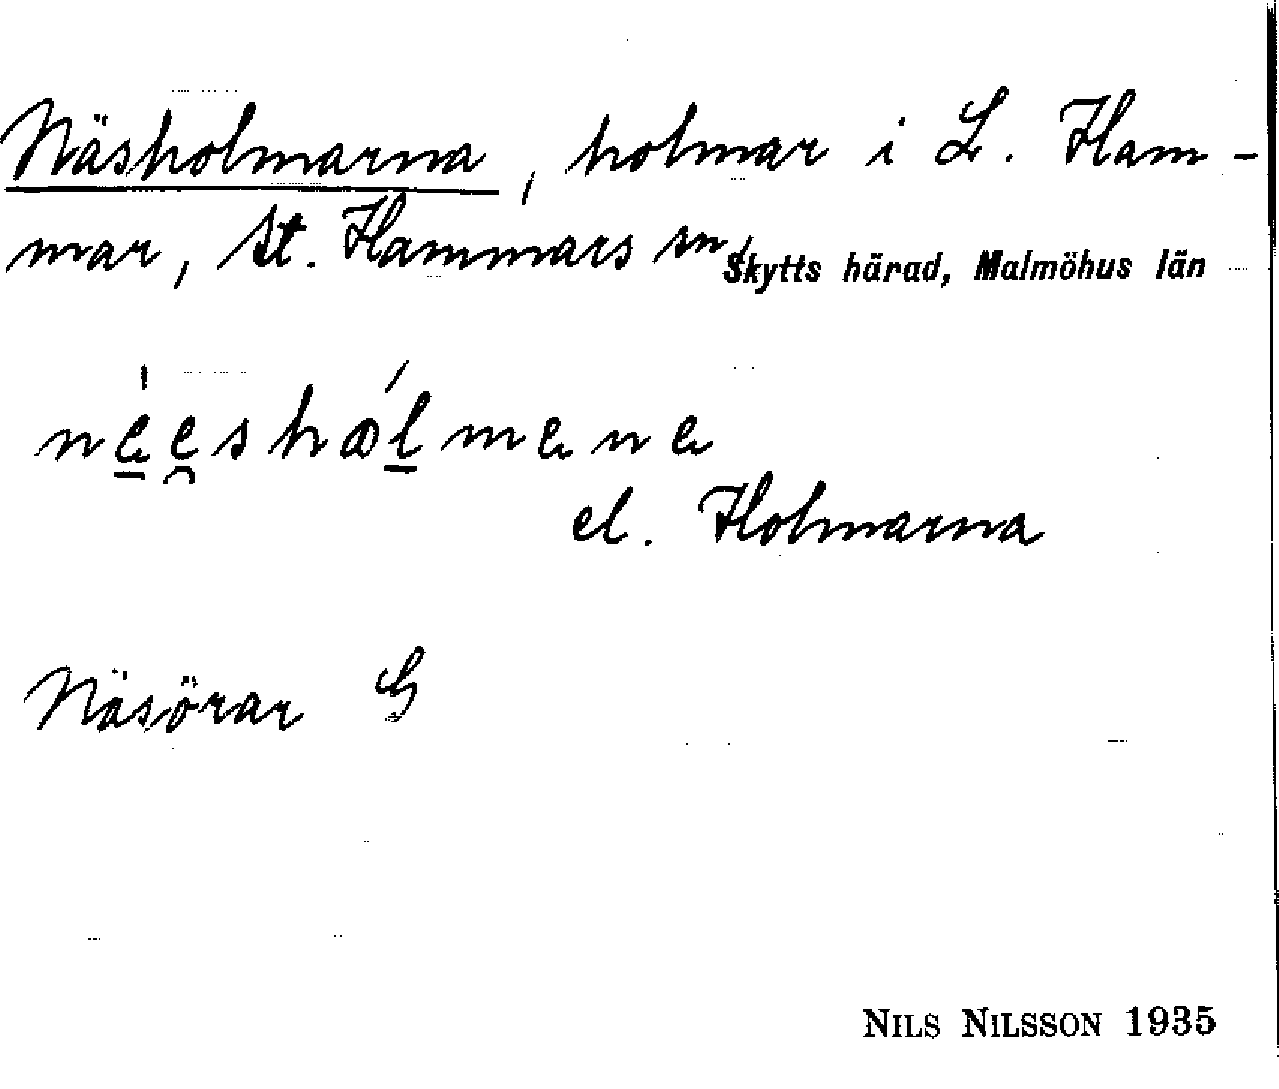 Näsholmarna, holmar i L. Ham-
mar, St. Hammars sn, Skytts härad, Malmöhus län
né̱e̯shɷḻ́mənə
el. Holmarna
Näsörar G
NILS NILSSON 1935